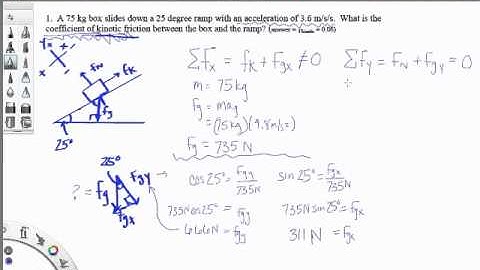 1. A 75 kg box slides down a 25 degree ramp with an acceleration of 3.6 m/s/s. What is the
coefficient of kinetic friction between the box and the ramp? (answer = = 0.08)
Σfx = fk + fgx ≠ 0
Σfy = fN + fgy = 0
m = 75kg
fg = mag
= (75kg)(9.8m/s²)
fg = 735 N
x + y +
x
fN
fk
fg
25°
25°
? = fg
fgy
fgx
cos25° = fgy/735N
sin25° = fgx/735N
735N cos25° = fgy
735N sin25° = fgx
666N = fgy
311 N = fgx